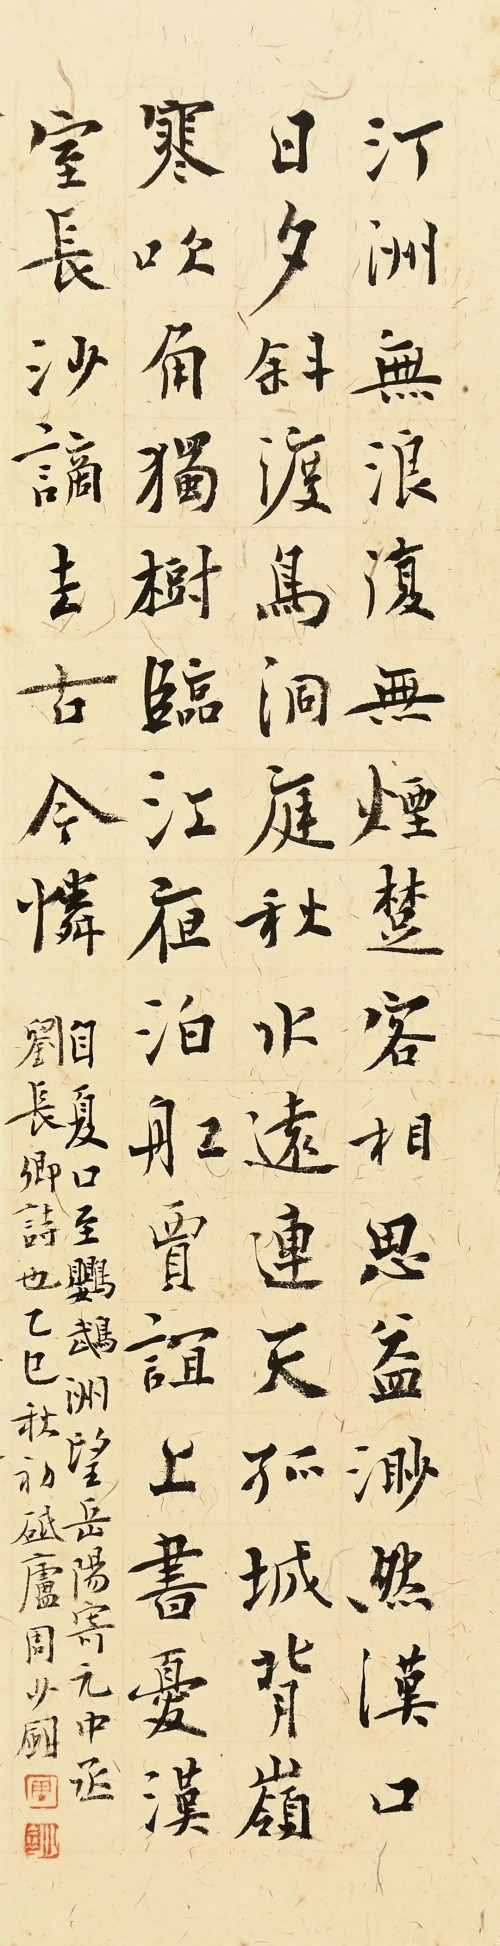 汀洲無浪復無煙楚客相思益渺然漢口
日夕斜渡鳥洞庭秋水遠連天孤城背嶺
寒吹角獨樹臨江夜泊舡賈誼上書憂漢
室長沙謫去古今憐
自夏口至鸚鵡洲望岳陽寄元中丞
劉長卿詩也乙巳秋初砥廬周少